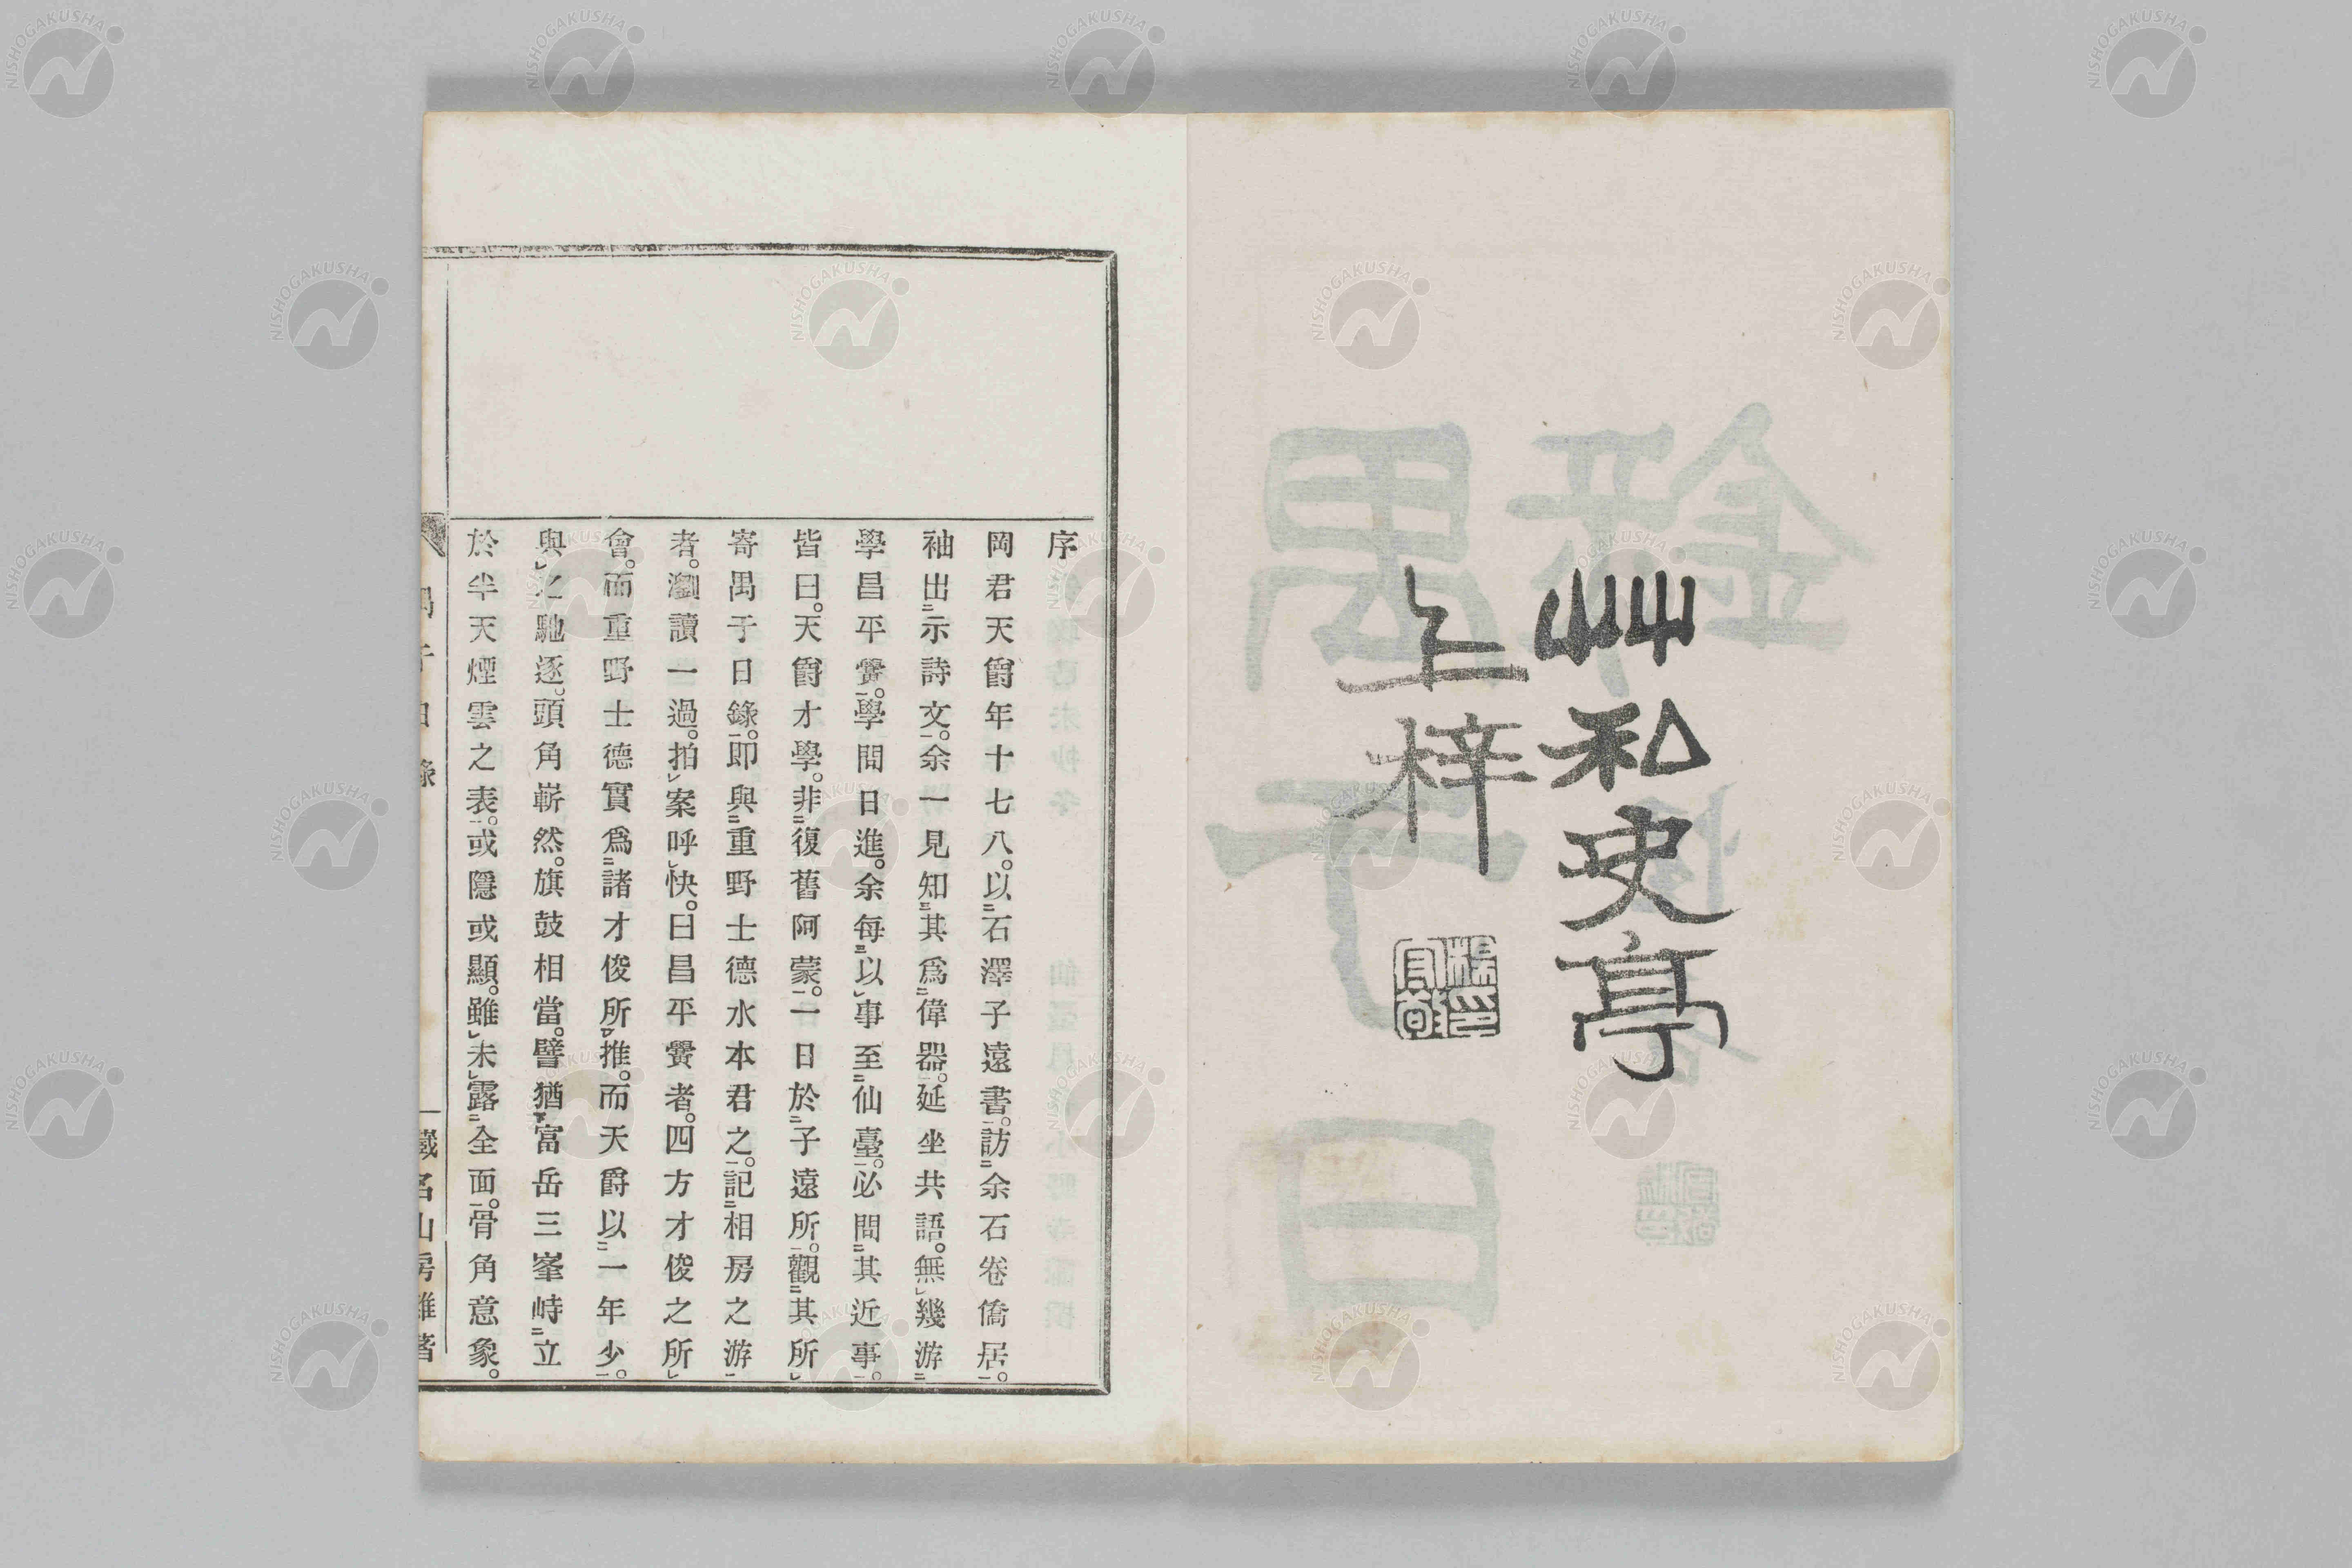 艸私史亭
上梓
序
岡君天爵年十七八。以石澤子遠書。訪余石卷僑居。
袖出示詩文。余一見知其爲偉器。延坐共語。無幾游
學昌平黌。學問日進。余每以事至仙臺。必問其近事。
皆曰。天爵才學。非復舊阿蒙。一日於子遠所。觀其所
寄禺于日錄。即與重野士德水本君之。記相房之游
者。瀏讀一過。拍案呼快。曰昌平黌者。四方才俊之所
會。而重野士德實爲諸才俊所推。而天爵以一年少。
與之馳逐。頭角嶄然。旗鼓相當。譬猶富岳三峯峙立
於半天煙雲之表。或隱或顯。雖未露全面。骨角意象。
禺于日錄
一
藏名山房雜著
NISHOGAKUSHA